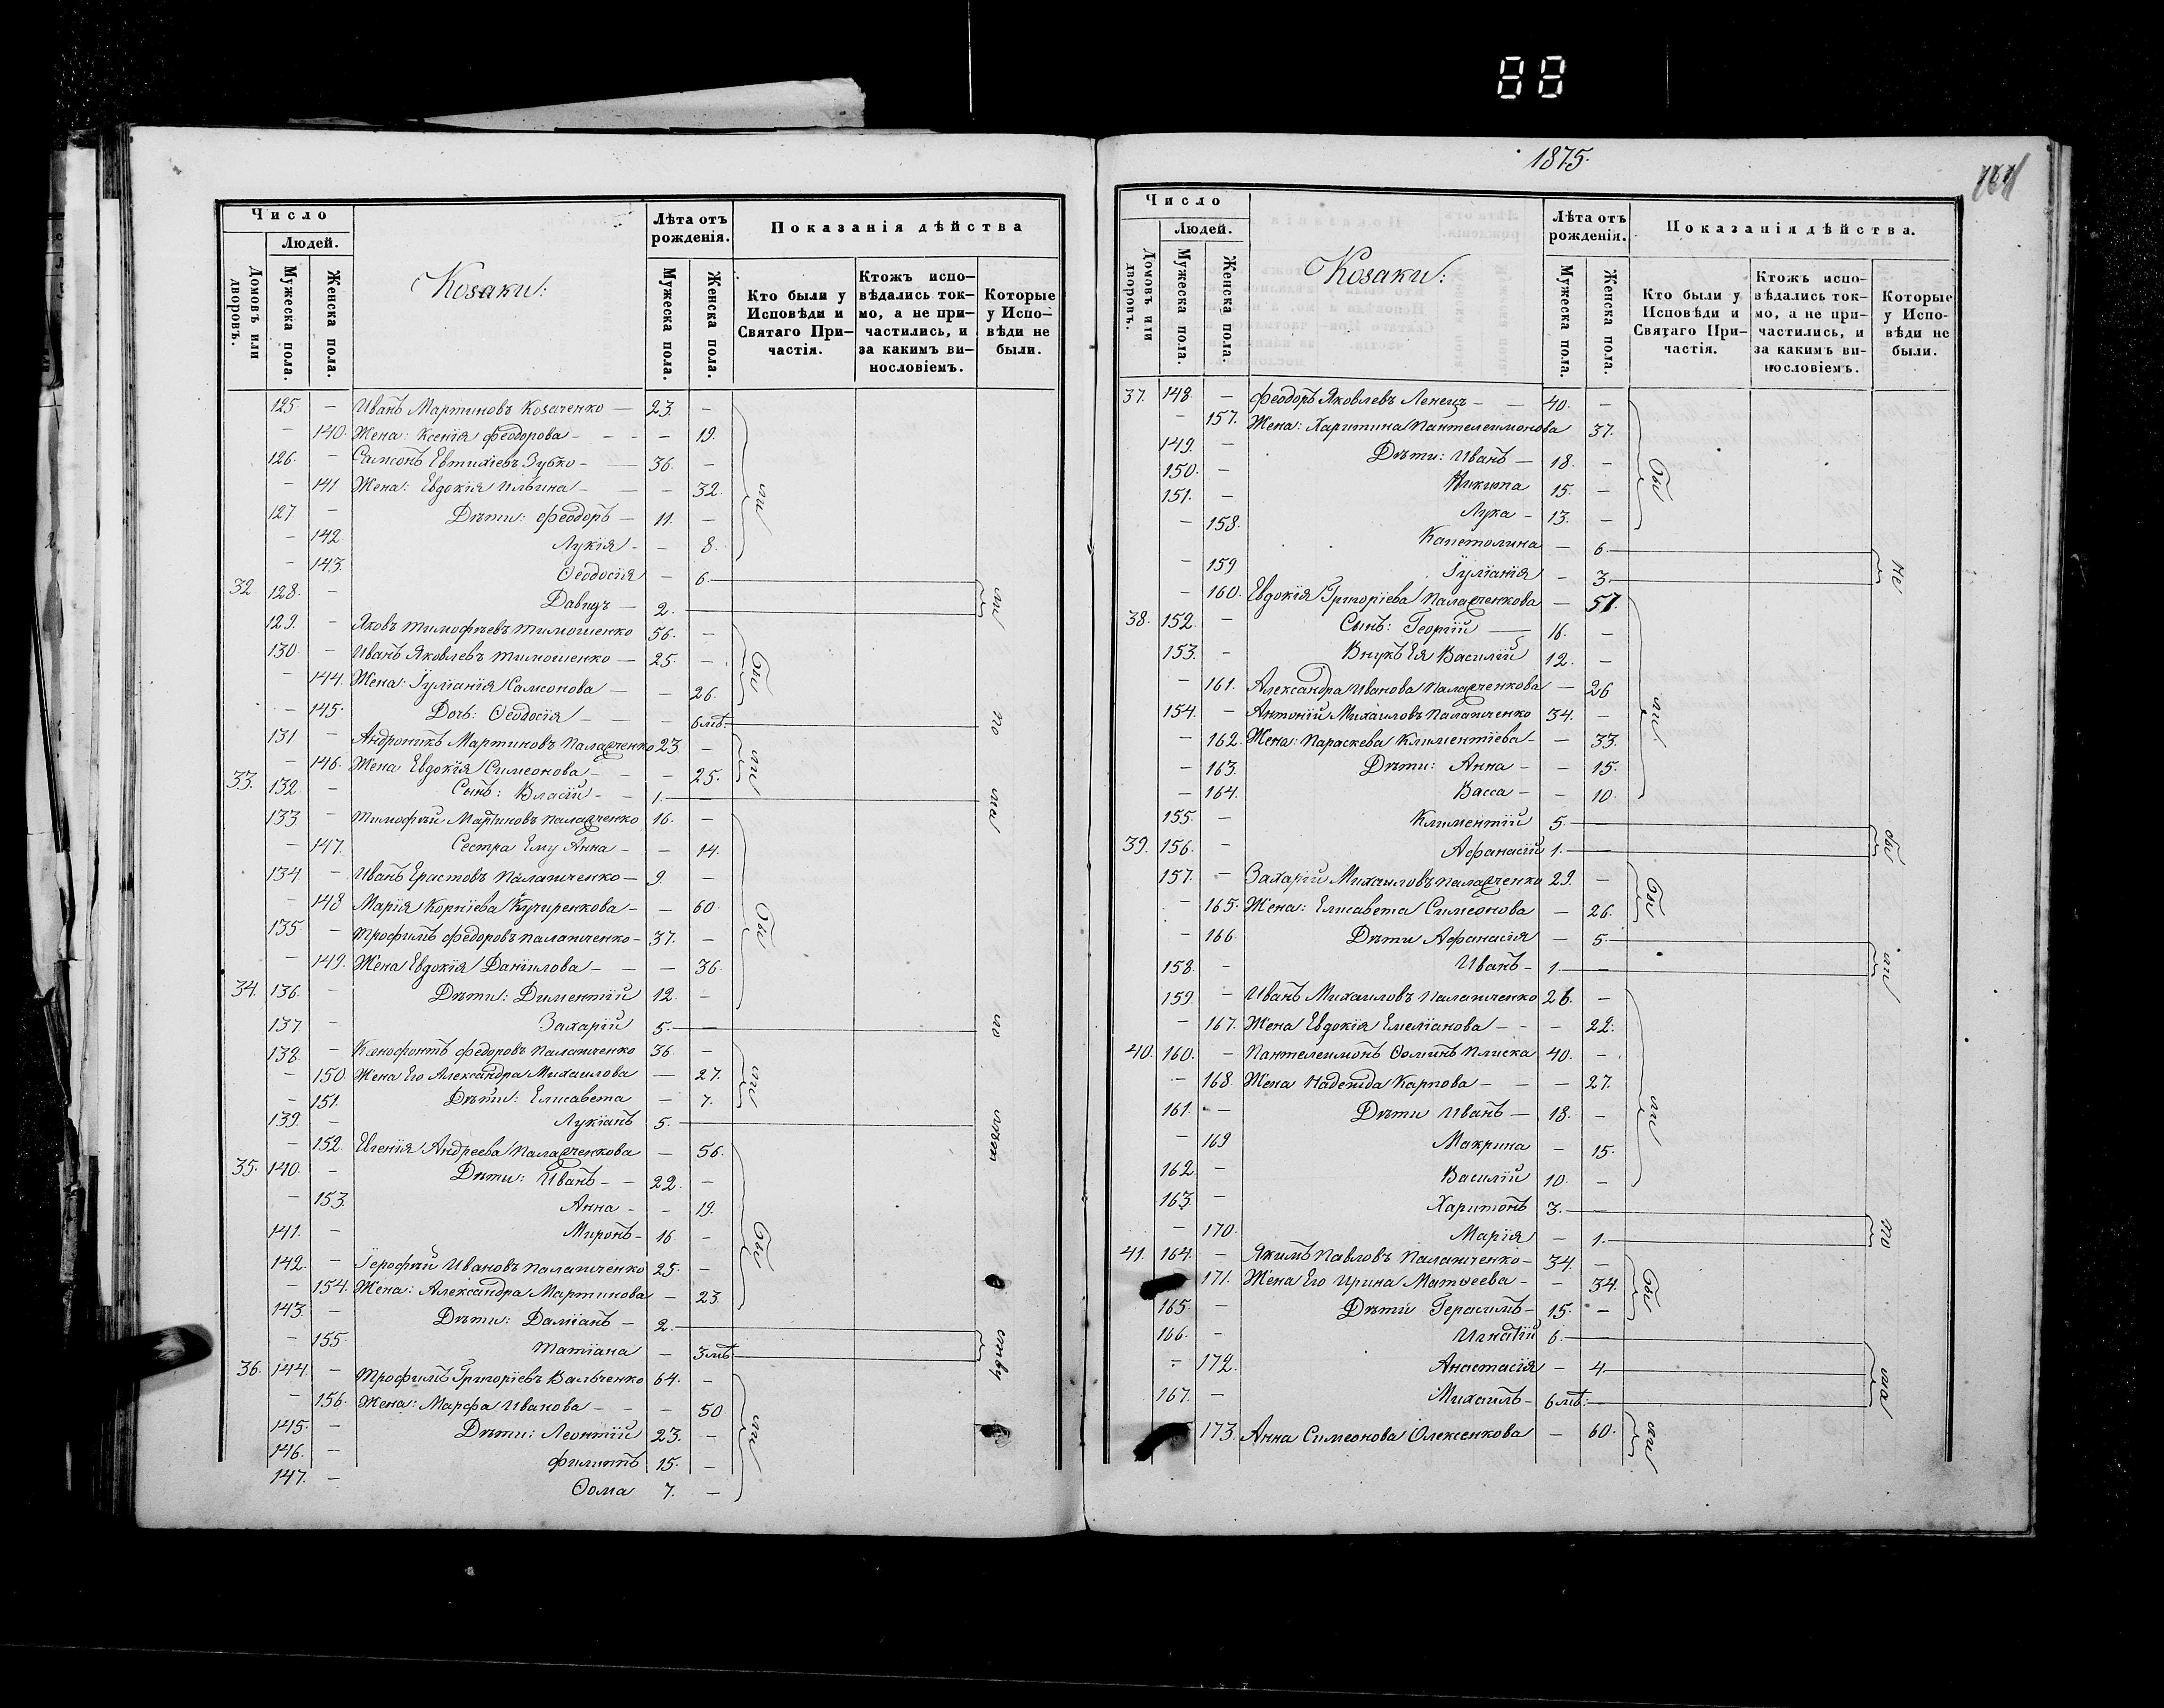 88
Число
Людей.
Домовъ или дворовъ.
Мужеска пола.
Женска пола.
Козаки:
Лѣта отъ рожденія.
Мужеска пола.
Женска пола.
Показанія дѣйства
Кто были у Исповѣди и Святаго Причастія.
Ктожъ исповѣдались токмо, а не причастились, и за какимъ винословіемъ.
Которые у Исповѣди не были.
125. — Иванъ Мартиновъ Козаченко — 23. —
— 140. Жена: Ксенія Феодорова — — 19.
126. — Самсонъ Евтихіевъ Зубко — 36. —
— 141 Жена: Евдокія Ильина — — 32.
127 — Дѣти: Феодоръ — 11. —
— 142. Лукія — — 8.
— 143. Ѳеодосія — 6.
32 128. — Давидъ — 2.
129. — Яковъ Тимофѣевъ Тимошенко 56. —
130. — Иванъ Яковлевъ Тимошенко — 25. —
— 144. Жена: Іуліанія Самсонова — — 26.
— 145. Дочь: Ѳеодосія — — 6 мѣ.
131 — Андроникъ Мартиновъ Палащенко 23 —
— 146. Жена Евдокія Симеонова — — 25.
33. 132 — Сынъ: Власій — 1. —
133 — Тимофѣй Мартиновъ Палащенко 16. —
— 147. Сестра Ему Анна — — 14.
134 — Иванъ Ерастовъ Палащенко — 9. —
— 148 Марія Корніева Кучиренкова — — 60
135 — Трофимъ Федоровъ Палащенко — 37. —
— 149. Жена Евдокія Даніилова — — 36.
34. 136. — Дѣти: Диментій 12. —
137 — Захарій 5. —
138. — Ксенофонтъ Федоровъ Палащенко 36. —
— 150 Жена Его Александра Михаилова — 27.
— 151. Дѣти: Елисавета — 7.
139. — Лукіанъ 5. —
— 152. Евгенія Андреева Палащенкова — 56.
35. 140. — Дѣти: Иванъ — 22. —
— 153. Анна — — 19.
141. — Миронъ — 16 —
142. — Іерофѣй Ивановъ Палащенко 25. —
— 154. Жена: Александра Мартинова — 23
143. — Дѣти: Даміанъ — 2.
— 155. Татіана — 3 мѣ.
36. 144. — Трофимъ Григоріевъ Вальченко 64. —
— 156. Жена: Марфа Иванова — — 50
145. — Дѣти: Леонтій 23. —
146. — Филиппъ 15. —
147. — Ѳома 7. —
1875.
Число
Людей.
Домовъ или дворовъ.
Мужеска пола.
Женска пола.
Козаки:
Лѣта отъ рожденія.
Мужеска пола.
Женска пола.
Показанія дѣйства.
Кто были у Исповѣди и Святаго Причастія.
Ктожъ исповѣдались токмо, а не причастились, и за какимъ винословіемъ.
Которые у Исповѣди не были.
37. 148. — Феодоръ Яковлевъ Ленецъ — 40. —
— 157. Жена: Харитина Пантелеимонова 37.
149. — Дѣти: Иванъ — 18. —
150. — Никита 15. —
151. — Лука — 13. —
— 158. Капетолина — 6.
— 159 Іуліанія — 3.
— 160. Евдокія Григоріева Палащенкова — 57.
38. 152. — Сынъ: Георгій — 16. —
153. — Внукъ Ея Василій 12. —
— 161. Александра Иванова Палащенкова — 26
154. — Антоній Михаиловъ Палащенко 34. —
— 162. Жена: Параскева Климентіева — — 33.
— 163. Дѣти: Анна — — 15.
— 164. Васса — — 10.
155. — Климентій 5. —
39. 156. — Афанасій 1. —
157. — Захарій Михаиловъ Палащенко 29. —
— 165. Жена: Елисавета Симеонова — 26.
— 166. Дѣти Афанасія — 5.
158. — Иванъ — 1. —
159. — Иванъ Михаиловъ Палащенко 26. —
— 167. Жена Евдокія Емеліанова — — 22.
40. 160. — Пантелеимонъ Ѳоминъ Плиска 40. —
— 168. Жена Надежда Карпова — — 27.
161. — Дѣти Иванъ — 18. —
— 169 Макрина — 15.
162. — Василій 10. —
163. — Харитонъ 3. —
— 170. Марія — 1.
41. 164. — Якимъ Павловъ Палащенко — 34. —
171. Жена Его Ирина Матѳеева — — 34.
165. — Дѣти Герасимъ — 15. —
166. — Игнатій 6. —
— 172. Анастасія — 4.
167. — Михаилъ — 6 мѣ. —
173. Анна Симеонова Олексенкова — 60.